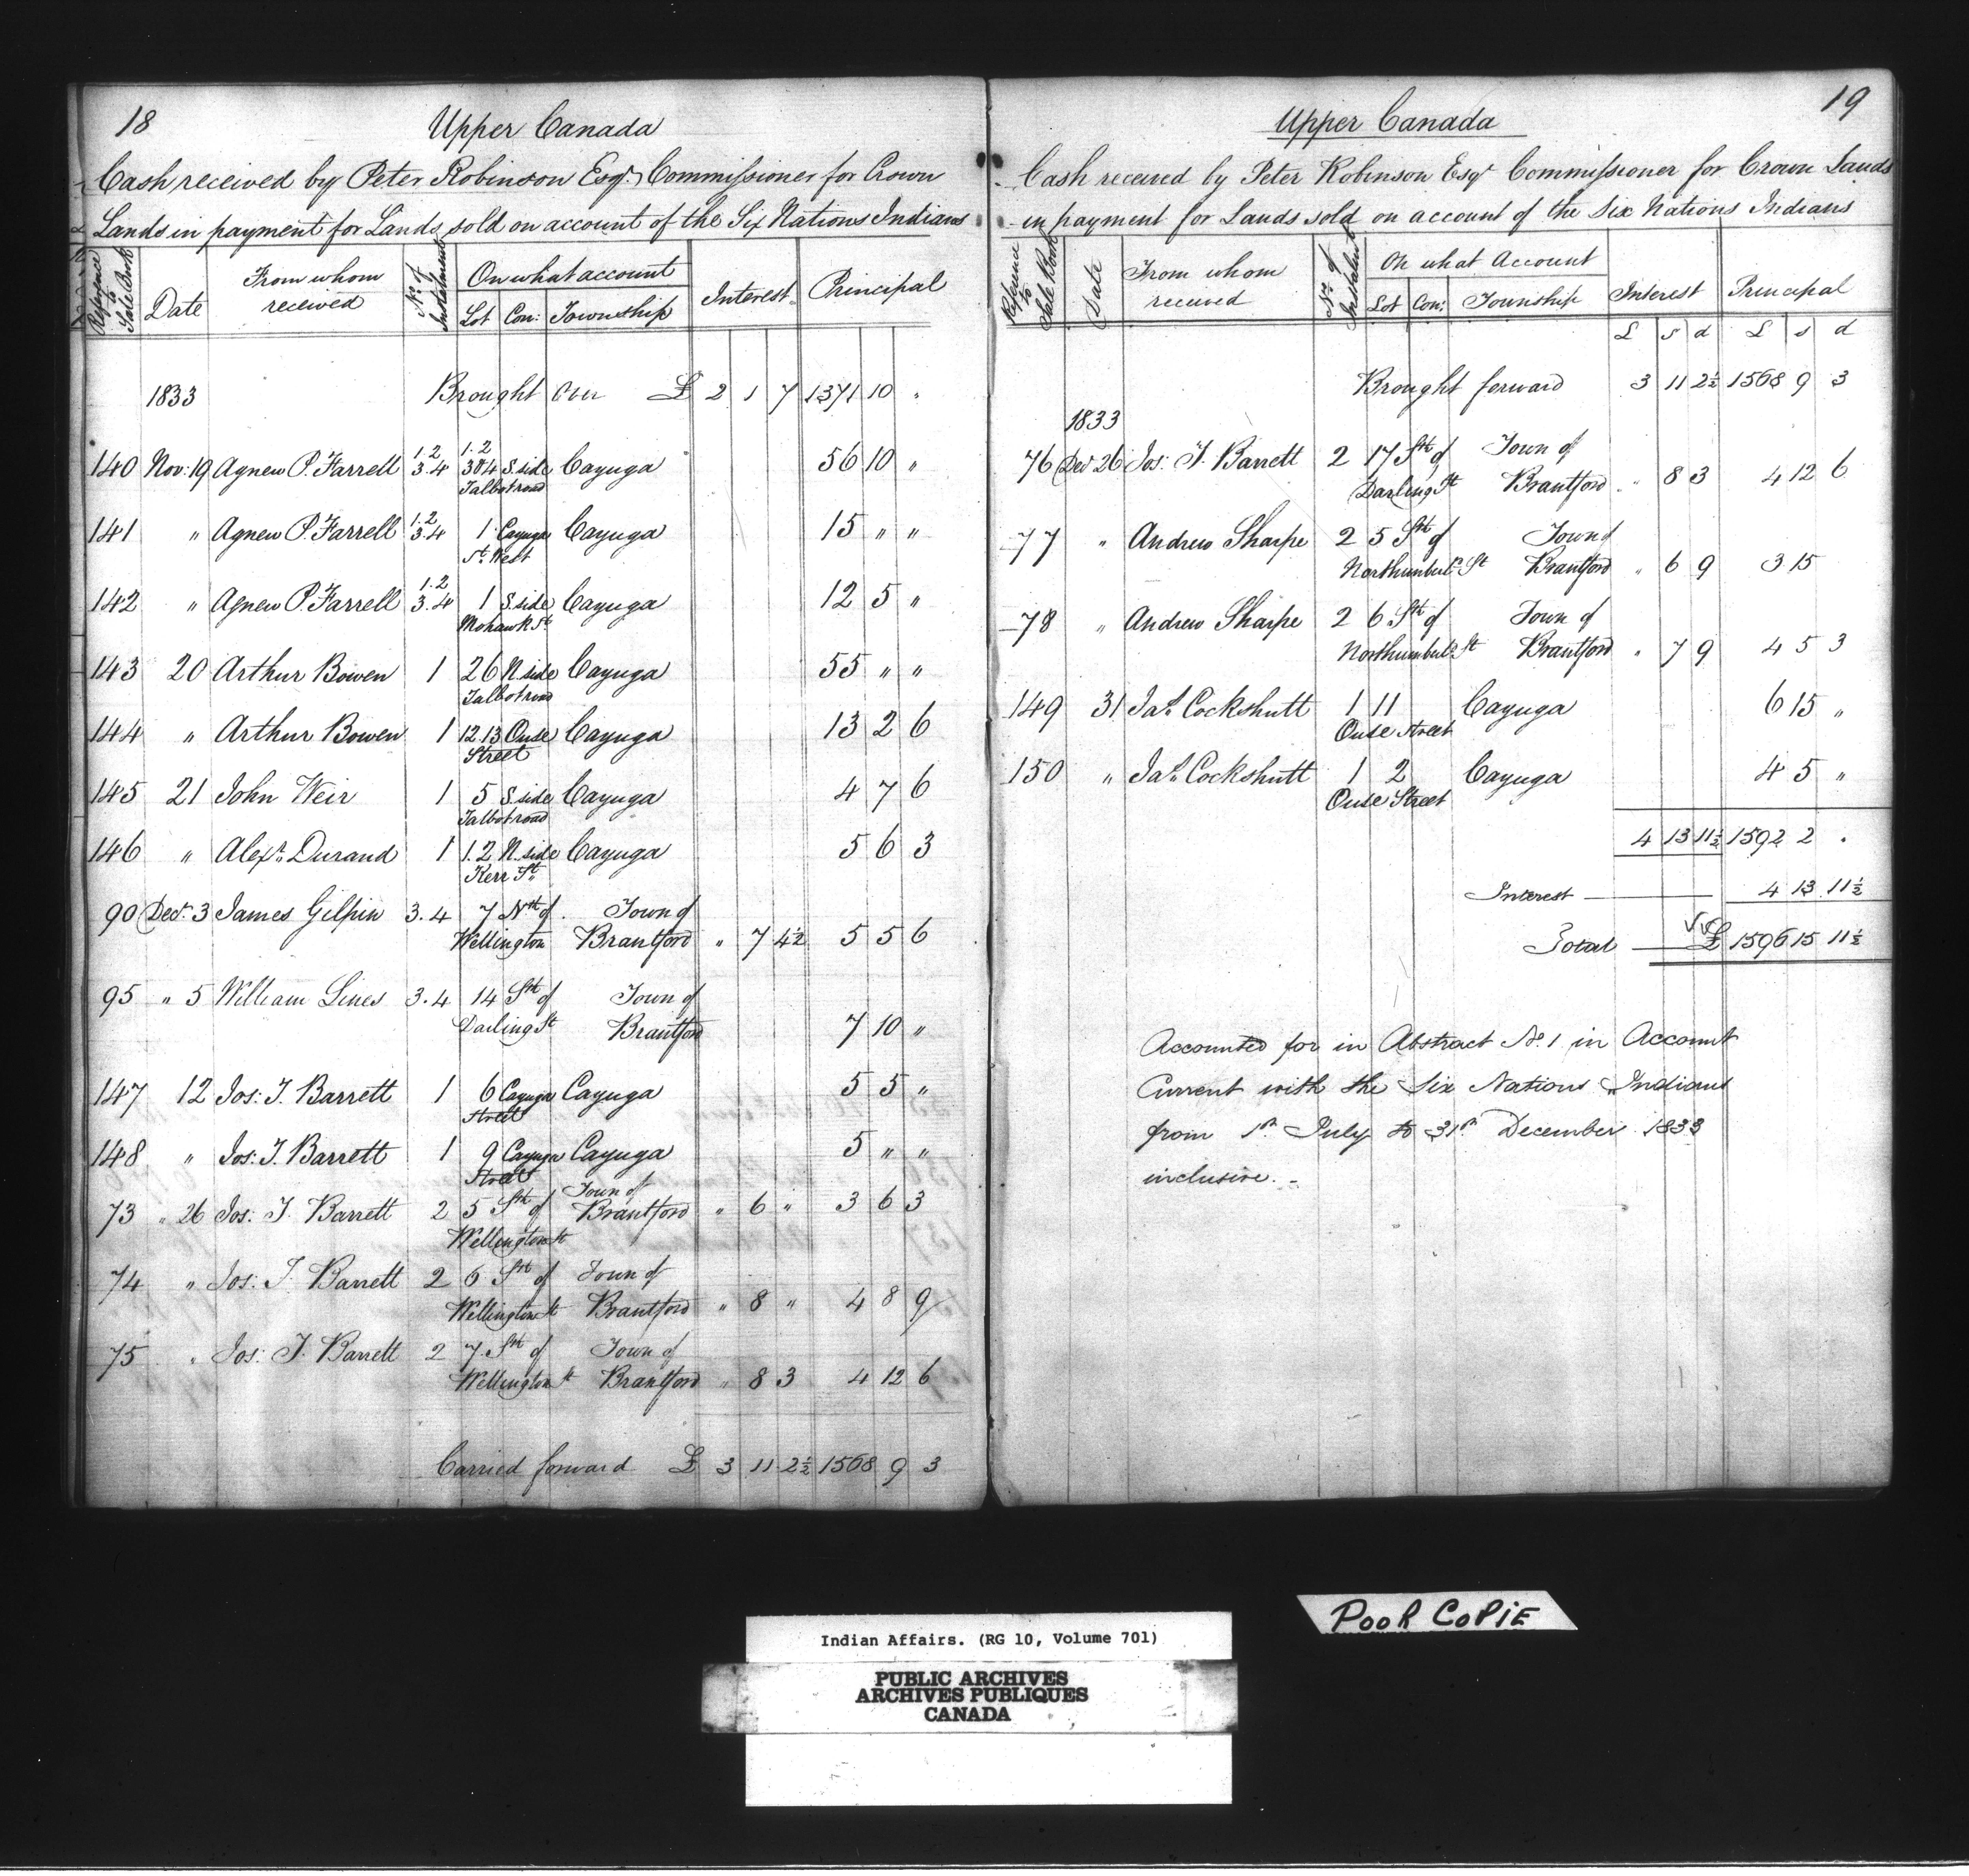 18
Upper Canada
Cash received by Peter Robinson Esqr. Commissioner for Crown
Lands in payment for Lands sold on account of the Six Nations Indians
Reference to Sale Book Date From whom received No. of Instalment On what account Interest Principal
Lot Con: Township
1833 Brought over £ 2 1 7 1371 10 "
140 Nov: 19 Agnew P. Farrell 1.2 3.4 1.2 3&4 S. side Cayuga 56 10 "
Talbot road
141 " Agnew P. Farrell 1.2 3.4 1 Cayuga Cayuga 15 " "
St. West
142 " Agnew P. Farrell 1.2 3.4 1 S. side Cayuga 12 5 "
Mohawk St.
143 20 Arthur Bowen 1 26 N side Cayuga 55 " "
Talbot road
144 " Arthur Bowen 1 12.13 Ouse Cayuga 13 2 6
Street
145 21 John Weir 1 5 S. side Cayuga 4 7 6
Talbot road
146 " Alexr. Durand 1 1.2 N. side Cayuga 5 6 3
Kerr St.
90 Decr. 3 James Gilpin 3.4 7 Nth of Town of
Wellington Brantford " 7 4½ 5 5 6
95 " 5 William Lines 3.4 14 Sth of Town of
Darling St Brantford 7 10 "
147 12 Jos: T. Barrett 1 6 Cayuga Cayuga 5 5 "
Street
148 " Jos: T. Barrett 1 9 Cayuga Cayuga 5 " "
Street
73 " 26 Jos: T. Barrett 2 5 Sth of Town of Brantford " 6 " 3 6 3
Wellington St
74 " Jos: T. Barrett 2 6 Sth of Town of
Wellington St Brantford " 8 " 4 8 9
75 " Jos: T. Barrett 2 7 Sth of Town of
Wellington St Brantford " 8 3 4 12 6
Carried forward £ 3 11 2½ 1568 9 3
19
Upper Canada
Cash received by Peter Robinson Esqr Commissioner for Crown Lands
in payment for Lands sold on account of the Six Nations Indians
Reference to Sale Book Date From whom received No. of Instalment On what Account Interest Principal
Lot Con: Township
£ s d £ s d
Brought forward 3 11 2½ 1568 9 3
1833
76 Decr 26 Jos: T. Barrett 2 17 Sth of Town of
Darling St Brantford " 8 3 4 12 6
77 " Andrew Sharpe 2 5 Sth of Town of
Northumberl. St Brantford " 6 9 3 15
78 " Andrew Sharpe 2 6 Sth of Town of
Northumberl. St Brantford " 7 9 4 5 3
149 31 Jas. Cockshutt 1 11 Cayuga 6 15 "
Ouse Street
150 " Jas. Cockshutt 1 2 Cayuga 4 5 "
Ouse Street
4 13 11½ 1592 2 .
Interest 4 13 11½
Total £ 1596 15 11½
Accounted for in Abstract No. 1 in Account
Current with the Six Nations Indians
from 1st July to 31st December 1833
inclusive. -
POOR COPIE
Indian Affairs. (RG 10, Volume 701)
PUBLIC ARCHIVES
ARCHIVES PUBLIQUES
CANADA